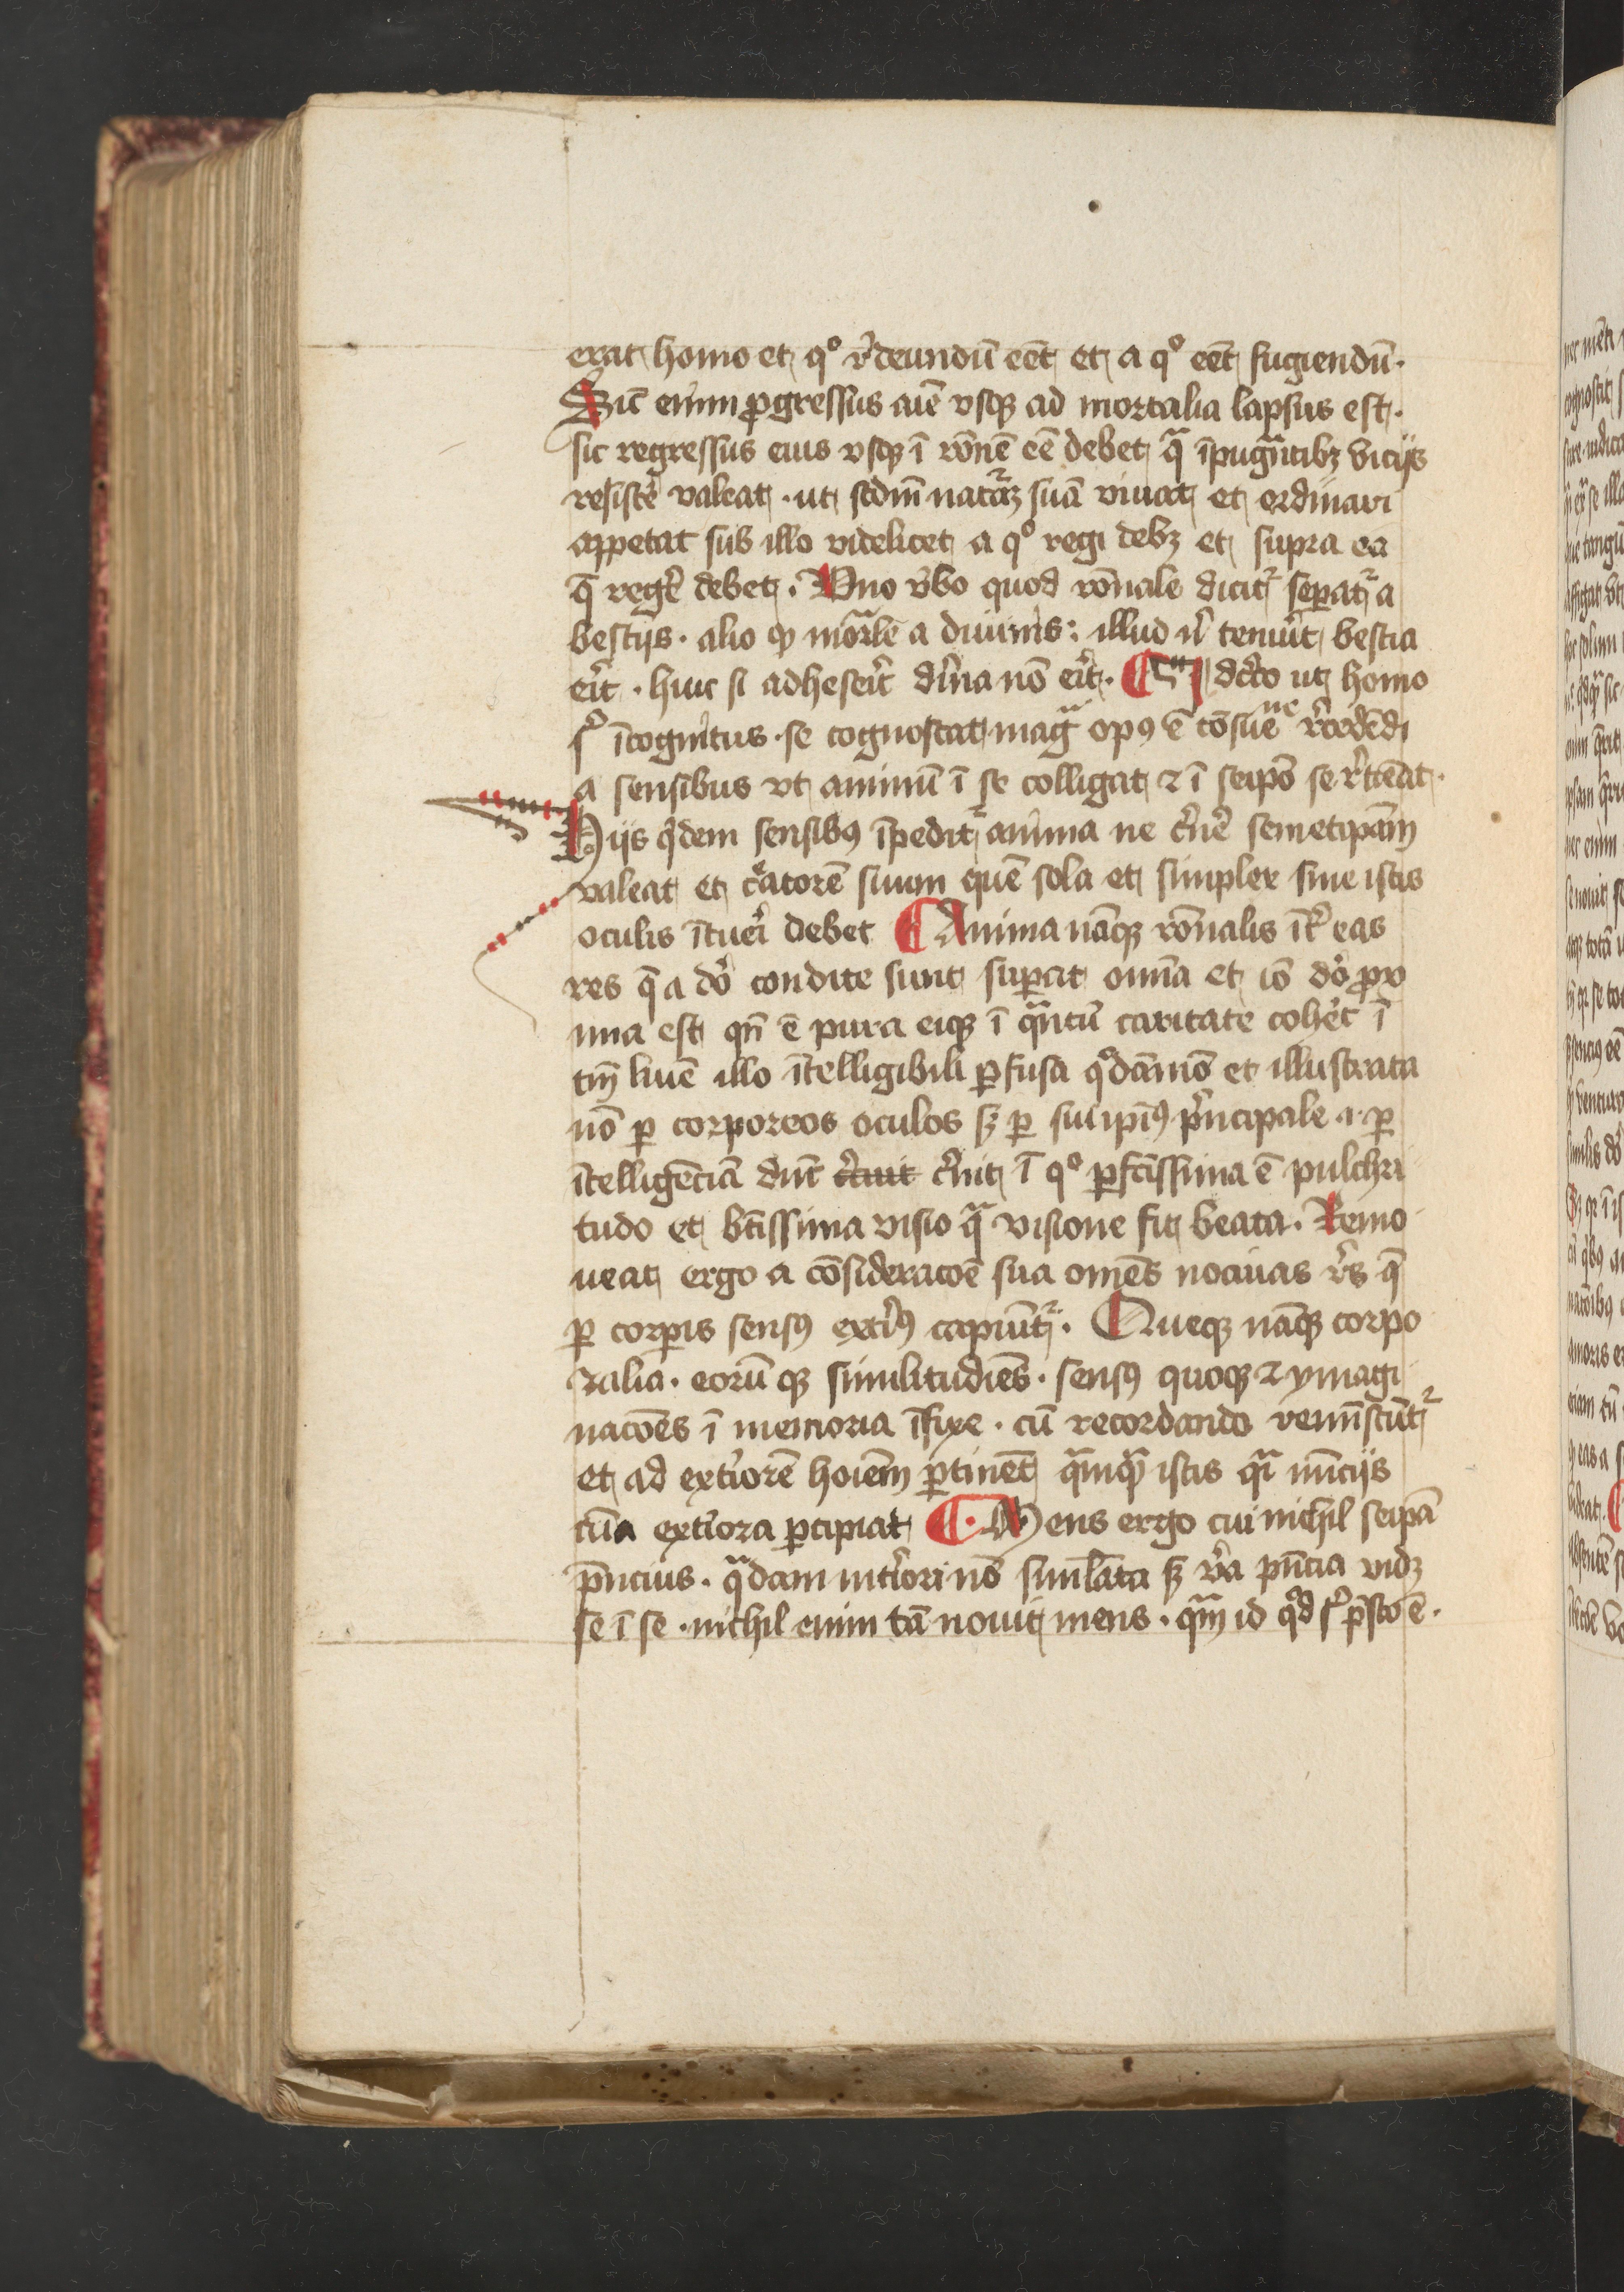 erat homo et qͦ r̾deundū eēt et a qͦ eēt fugiendū.
Sic̄ enim ꝓgressus aīe vsqꝫ ad mortalia lapsus est.
sic regressus eius vsqꝫ ī rōnē eē debet qͣ īpugnātibꝫ vicijs
resistē valeat · ut scdm̄ naturā suā viuat et ordinari
appetat sub illo videlicet a qͦ regi debꝫ et supra ea
q̄ reg̾e debet. Uno v̾bo quod rōnale dicit᷑ sepat᷑ a
bestijs · alio qꝫ mortale a diuinis: illud n̾ tenu̾it bestia
erit · huic si adheserit diuina nō erit.
ī̾cognitus · se cognoscat magͣ opꝰ ē cōsue ne r̾cedēdi
a sensibus vt animū ī se colligat ⁊ ī seipō se r̾tīeat.
Hijs q̾dem sensibꝰ īpedit᷑ anima ne c̾ne̾ semetipam̄
valeat et c̾atorē suum quē sola et simplex siue istis
oculis ītueri debet ¶ Anima nāqꝫ rōnalis īt̾ eas
res q̄ a dō condite sunt supat omīa et iō dō ꝓxi
ma est qn̄ ē pura eiqꝫ ī qͣntū caritate coh̾et ī
tm̄ lumē illo ītelligibili ꝑfusa qͦdāmō et illustrata
nō ꝑ corporeos oculos sꝫ ꝑ sui ipīꝰ p̾ncipale .i. ꝑ
ītelligēciā c̾nit ī qͦ ꝑfctissima ē pulchri
tudo et btissima visio qͣ visione fit beata. Remo
ueat ergo a cōsideracōe sua omēs nociuas r̾es q̄
ꝑ corpis sensꝰ ext̾iꝰ capiūt᷑. Queqꝫ nāqꝫ corpo
ralia · eorū qꝫ similitudiēs · sensꝰ quoqꝫ ⁊ ymagi
nacōes ī memoria īfixe · cū recordando reminiscūt᷑
et ad ext̾iorē hoiem̄ ꝑtinēt qͣmqͣ istis qͣi nūcijs
ext̾iora ꝑcipiat ¶ Mens ergo cui nichil seipā
p̄ncius · qͣdam int̾iori nō simulāta sꝫ v̾a p̄ncia vidꝫ
se ī se · nichil enim tā nouit mens · qͣm id qͦd s̾ p̄sto ē.